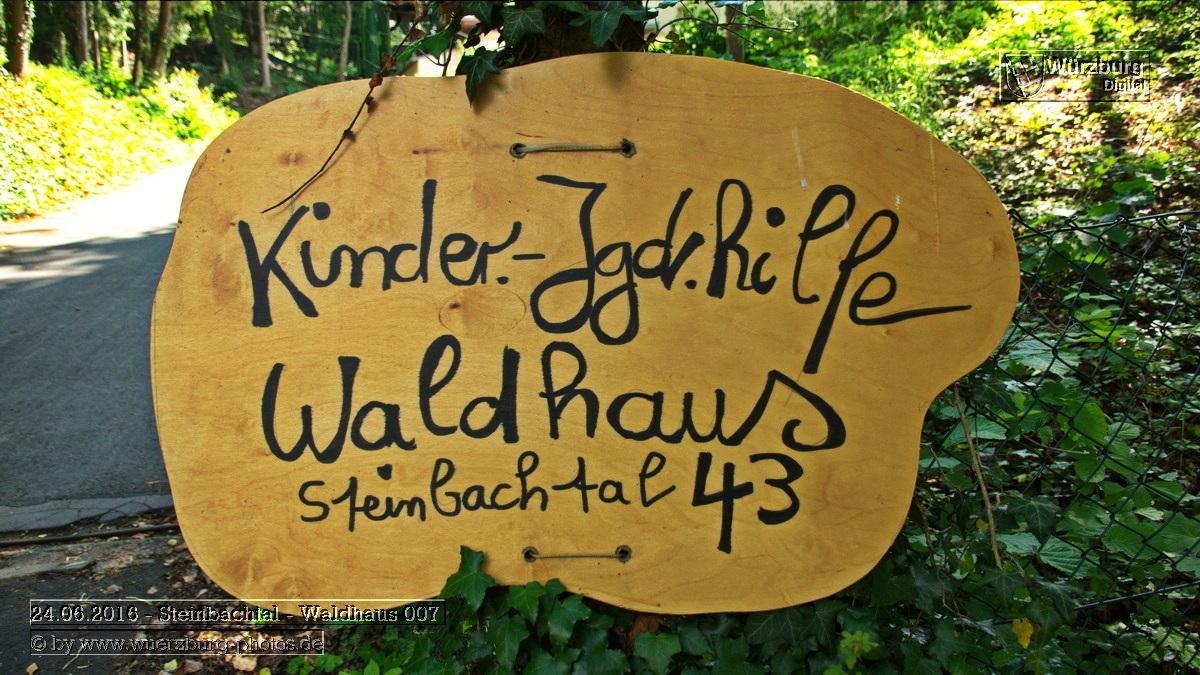 Würzburg
Digital
Kinder.-Jgdr.hilfe
Waldhaus
Steinbachtal 43
24.06.2016 - Steinbachtal - Waldhaus 007
© by www.wuerzburg-photos.de